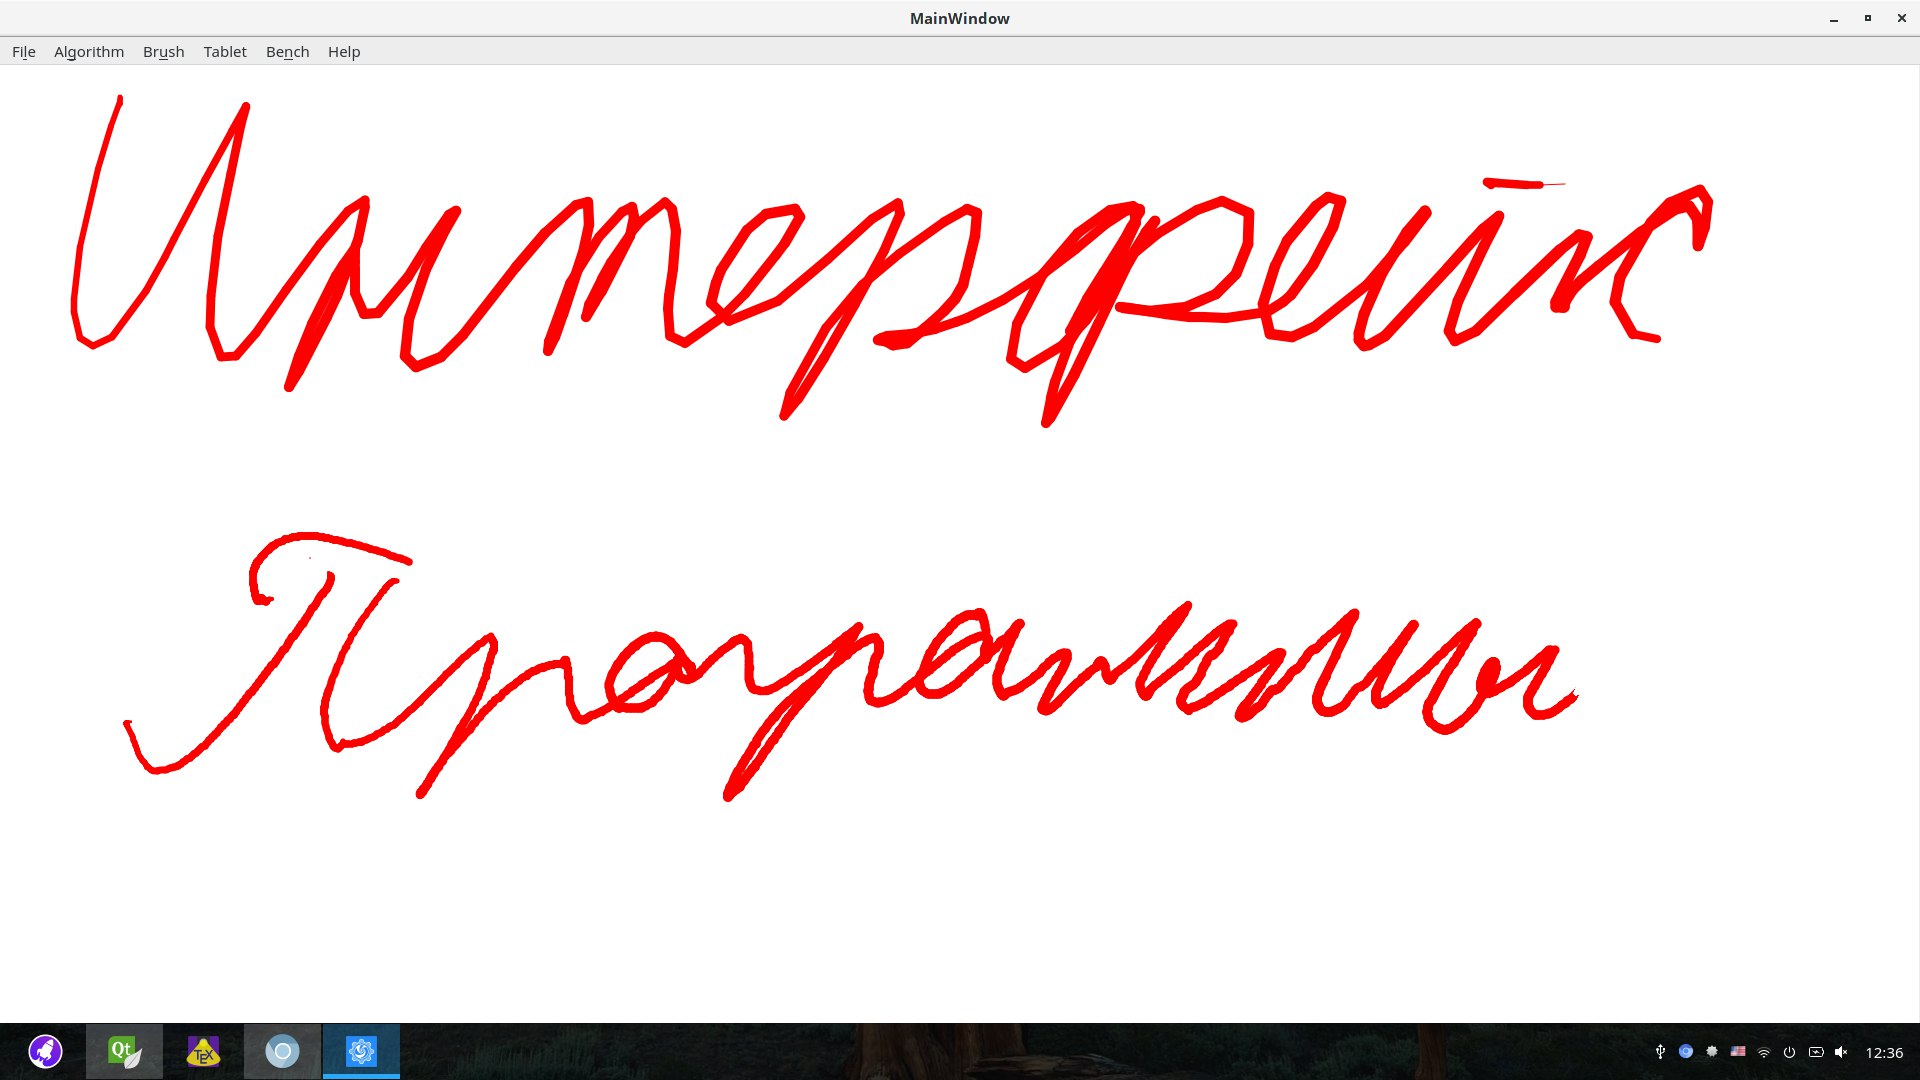 MainWindow
File Algorithm Brush Tablet Bench Help
Интерфейс
Программы
Qt
TEX
12:36